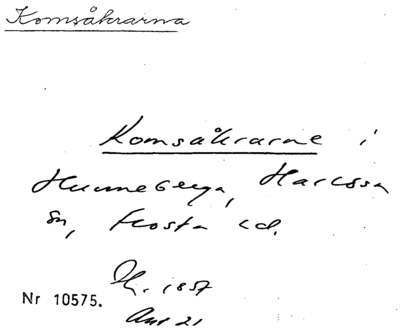 Komsåkrarna
Komsåkrarne i
Hunneberga, Harlösa
sn, Frosta hd.
Nr 10575.
1857